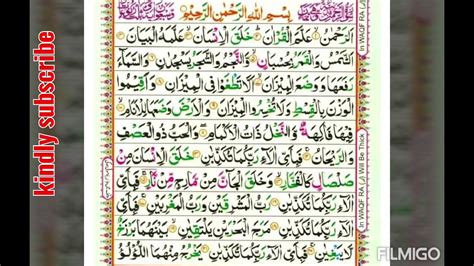 بِسْمِ اللّٰهِ الرَّحْمٰنِ الرَّحِيْمِ
اَلرَّحْمٰنُ عَلَّمَ الْقُرْاٰنَ خَلَقَ الْاِنْسَانَ عَلَّمَهُ الْبَيَانَ
اَلشَّمْسُ وَالْقَمَرُ بِحُسْبَانٍ وَّالنَّجْمُ وَالشَّجَرُ يَسْجُدٰنِ وَالسَّمَآءَ
رَفَعَهَا وَوَضَعَ الْمِيْزَانَ اَلَّا تَطْغَوْا فِي الْمِيْزَانِ وَاَقِيْمُوا
الْوَزْنَ بِالْقِسْطِ وَلَا تُخْسِرُوا الْمِيْزَانَ وَالْاَرْضَ وَضَعَهَا لِلْاَنَامِ
فِيْهَا فَاكِهَةٌ وَّالنَّخْلُ ذَاتُ الْاَكْمَامِ وَالْحَبُّ ذُو الْعَصْفِ
وَالرَّيْحَانُ فَبِاَيِّ اٰلَآءِ رَبِّكُمَا تُكَذِّبٰنِ خَلَقَ الْاِنْسَانَ مِنْ
صَلْصَالٍ كَالْفَخَّارِ وَخَلَقَ الْجَآنَّ مِنْ مَّارِجٍ مِّنْ نَّارٍ فَبِاَيِّ
اٰلَآءِ رَبِّكُمَا تُكَذِّبٰنِ رَبُّ الْمَشْرِقَيْنِ وَرَبُّ الْمَغْرِبَيْنِ فَبِاَيِّ
اٰلَآءِ رَبِّكُمَا تُكَذِّبٰنِ مَرَجَ الْبَحْرَيْنِ يَلْتَقِيٰنِ بَيْنَهُمَا بَرْزَخٌ
لَّا يَبْغِيٰنِ فَبِاَيِّ اٰلَآءِ رَبِّكُمَا تُكَذِّبٰنِ يَخْرُجُ مِنْهُمَا اللُّؤْلُؤُ
kindly subscribe
In WAQF RA (ر) Will Be Thick
In WAQF RA (ر)
FILMIGO